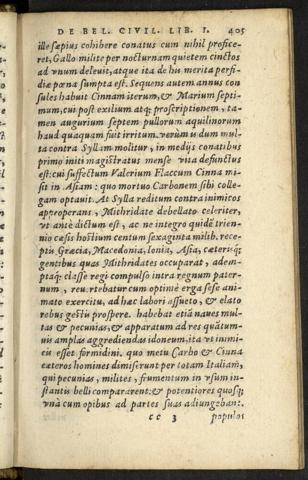 DE BEL. CIVIL. LIB. I. 405
ille sæpius cohibere conatus cum nihil profice-
ret, Gallo milite per nocturnam quietem cinctos
ad vnum deleuit, atque ita de his merita perfi-
diæ pœna sumpta est. Sequens autem annus con
sules habuit Cinnam iterum, & Marium septi-
mum, cui post exilium atq; proscriptionem, ta-
men augurium septem pullorum aquilinorum
haud quaquam fuit irritum. verùm is dum mul-
ta contra Syllam molitur, in medijs conatibus
primo initi magistratus mense vita defunctus
est: cui suffectum Valerium Flaccum Cinna mi-
sit in Asiam: quo mortuo Carbonem sibi colle-
gam optauit. At Sylla reditum contra inimicos
approperant, Mithridate debellato celeriter,
vt antè dictum est, ac ne integro quidẽ trien-
nio cæsis hostium centum sexaginta millib. rece-
ptis Græcia, Macedonia, Ionia, Asia, cæterisq;
gentibus quas Mithridates occuparat, adem-
ptaq; classe regi compulso intra regnum pater-
num, reuertebatur cum optimè erga sese ani-
mato exercitu, ad hæc labori assueto, & elato
rebus gestis prospere. habebat etiã naues mul-
tas & pecunias, & apparatum ad res quãtum-
uis amplas aggrediendas idoneum, ita vt inimi-
cis esset formidini. quo metu Carbo & Cinna
cæteros homines dimiserunt per totam Italiam,
qui pecunias, milites, frumentum in vsum in-
stantis belli compararent: & potentiores quosq;
vnà cum opibus ad partes suas adiungebant.
cc 3 populos